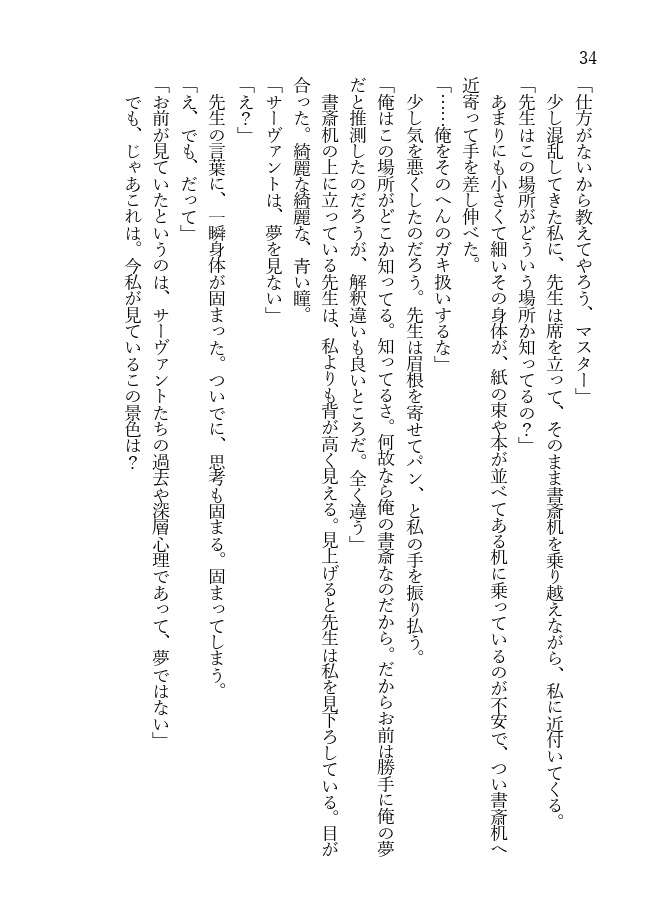 34
「仕方がないから教えてやろう、マスター」
少し混乱してきた私に、先生は席を立って、そのまま書斎机を乗り越えながら、私に近付いてくる。
「先生はこの場所がどういう場所か知ってるの？」
あまりにも小さくて細いその身体が、紙の束や本が並べてある机に乗っているのが不安で、つい書斎机へ
近寄って手を差し伸べた。
「……俺をそのへんのガキ扱いするな」
少し気を悪くしたのだろう。先生は眉根を寄せてパン、と私の手を振り払う。
「俺はこの場所がどこか知ってる。知ってるさ。何故なら俺の書斎なのだから。だからお前は勝手に俺の夢
だと推測したのだろうが、解釈違いも良いところだ。全く違う」
書斎机の上に立っている先生は、私よりも背が高く見える。見上げると先生は私を見下ろしている。目が
合った。綺麗な綺麗な、青い瞳。
「サーヴァントは、夢を見ない」
「え？」
先生の言葉に、一瞬身体が固まった。ついでに、思考も固まる。固まってしまう。
「え、でも、だって」
「お前が見ていたというのは、サーヴァントたちの過去や深層心理であって、夢ではない」
でも、じゃあこれは。今私が見ているこの景色は？